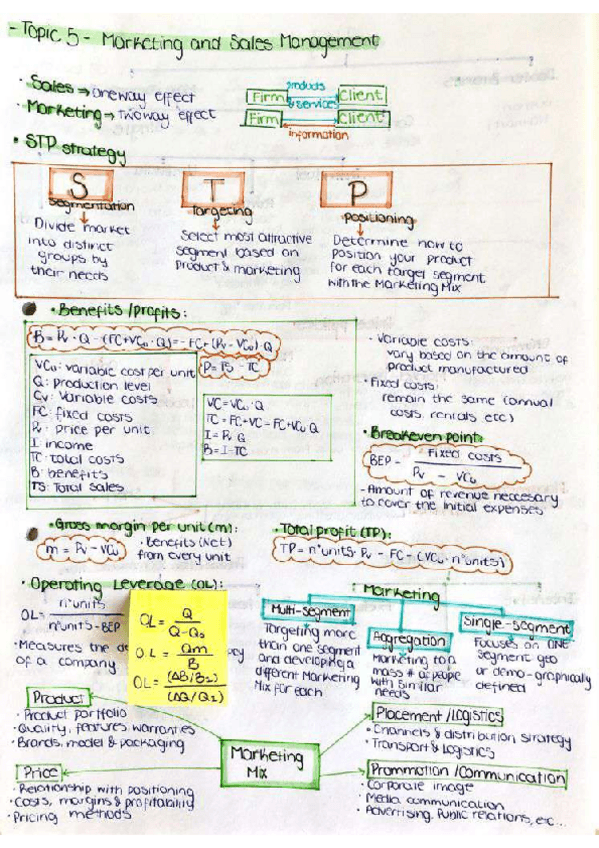 - Topic 5 - Marketing and Sales Management
• Sales → oneway effect
Firm products & services Client
• Marketing → Twoway effect
Firm information Client
• STP strategy
S T P
Segmentation Targeting Positioning
Divide market into distinct groups by their needs
Select most attractive segment based on product & marketing
Determine how to position your product for each target segment with the Marketing Mix
• Benefits / profits:
B = Pv · Q - (FC + VCu · Q) = - FC + (Pv - VCu) · Q
P = TS - TC
VCu: variable cost per unit
Q: production level
Cv: Variable costs
FC: fixed costs
Pv: price per unit
I income
TC: total costs
B: benefits
TS: Total Sales
VC = VCu · Q
TC = FC + VC = FC + VCu Q
I = Pv Q
B = I - TC
• Variable costs:
vary based on the amount of
product manufactured
• Fixed costs:
remain the same (annual
costs, rentals etc)
• Breakeven point:
BEP = Fixed costs / Pv - VCu
- Amount of revenue necessary
to cover the initial expenses
• Gross margin per unit (m):
m = Pv - VCu
• Benefits (Net)
from every unit
• Total profit (TP):
TP = nº units · Pv - FC - (VCu · nº units)
• Operating Leverage (OL):
OL = nº units / nº units - BEP
• Measures the
of a company
OL = Q / Q - Q0
O.L = Qm / B
OL = (ΔB/B1) / (ΔQ/Q1)
Marketing
Multi-segment
Targeting more
than one segment
and developing a
different Marketing
Mix for each
Aggregation
Marketing to a
mass # of people
with similar
needs
Single-segment
Focuses on ONE
segment geo
or demo-graphically
defined
Marketing Mix
Product
• Product portfolio
• Quality, features, warranties
• Brands, model & packaging
Placement / Logistics
• Channels & distribution strategy
• Transport & Logistics
Price
• Relationship with positioning
• Costs, margins & profitability
• Pricing methods
Prommotion / Communication
• Corporate image
• Media communication
• Advertising, Public relations, etc...